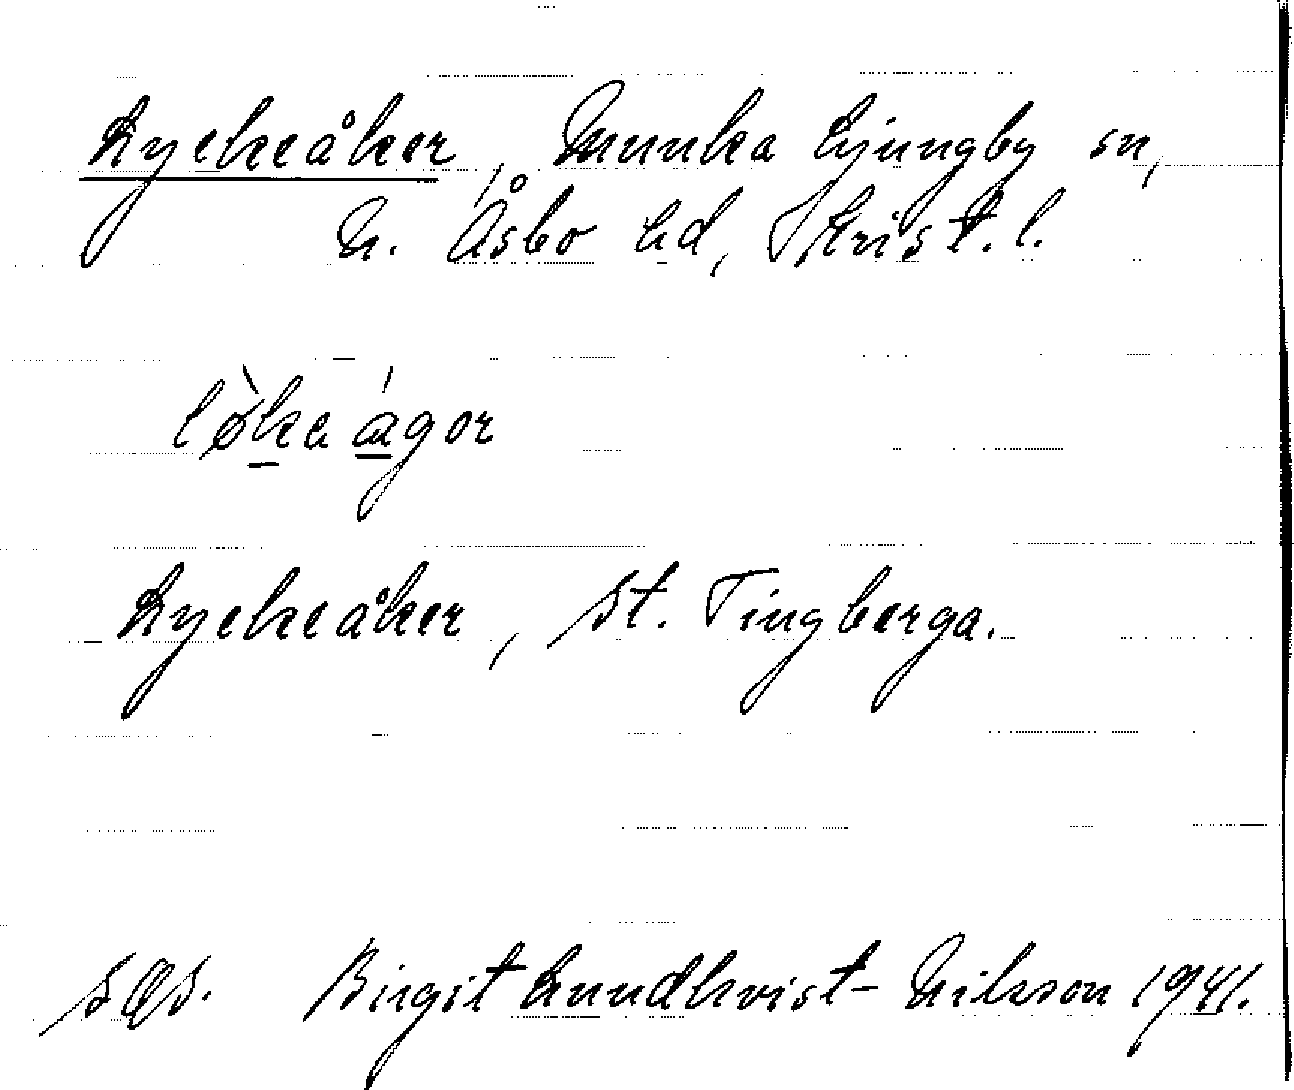 Lyckeåker, Munka Ljungby sn,
N. Åsbo hd, Krist. l.
lø̀keágor
Lyckeåker, St. Tingberga.
Birgit Lundkvist-Nilsson 1941.